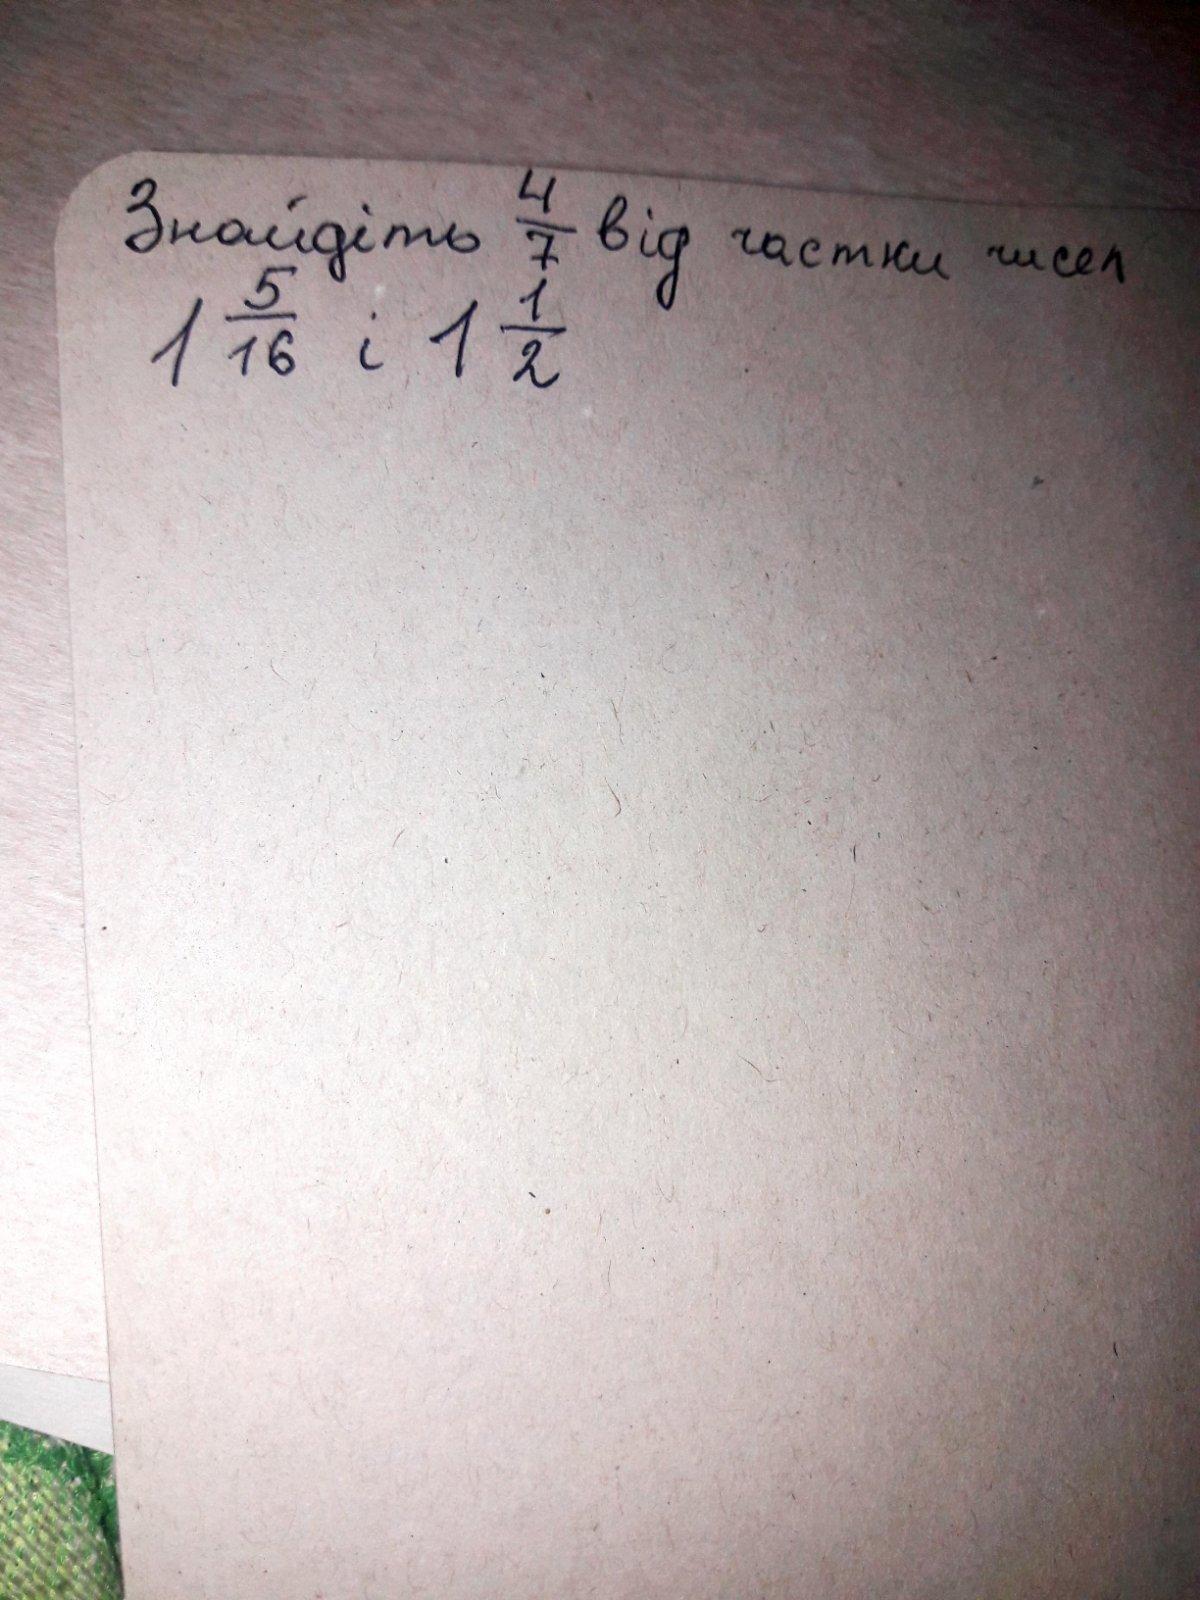 Знайдіть 4/7 від частки чисел
1 5/16 і 1 1/2